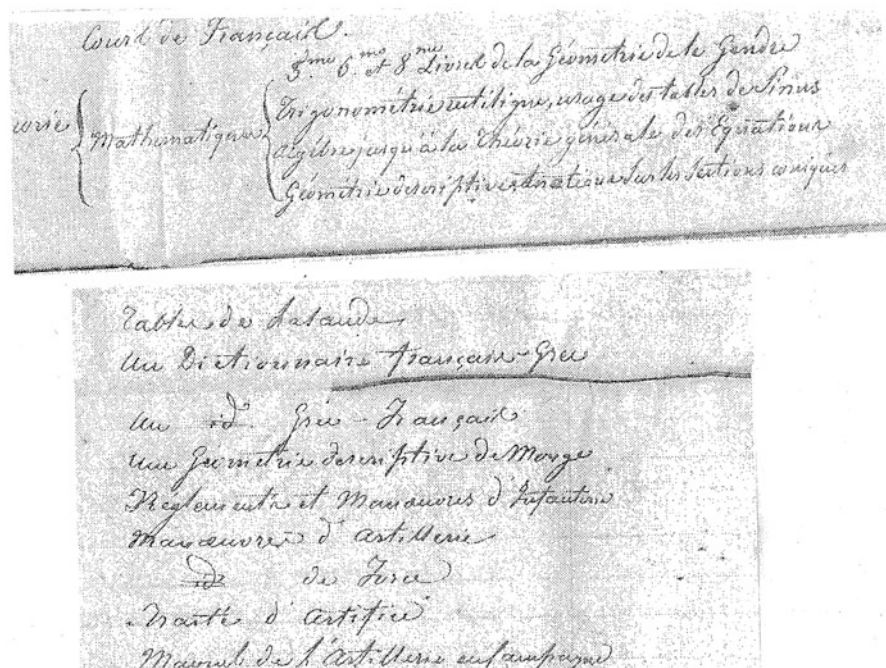 Cours de Français.
5.me 6.me et 8.me Livres de la Géométrie de le Gendre
Trigonométrie rectiligne, usage des tables de Sinus
orie { Mathématiques
Algèbre jusqu'à la Théorie générale des Équations
Géométrie descriptive sur les Sections coniques
Tables de Lalande
Un Dictionnaire français-Grec
Un id. Grec-Français
Une Géométrie descriptive de Monge
Réglements et Manœuvres d'Infanterie
Manœuvres d'Artillerie
id. de Force
Traité d'Artifice
Manuel de l'Artillerie en Campagne